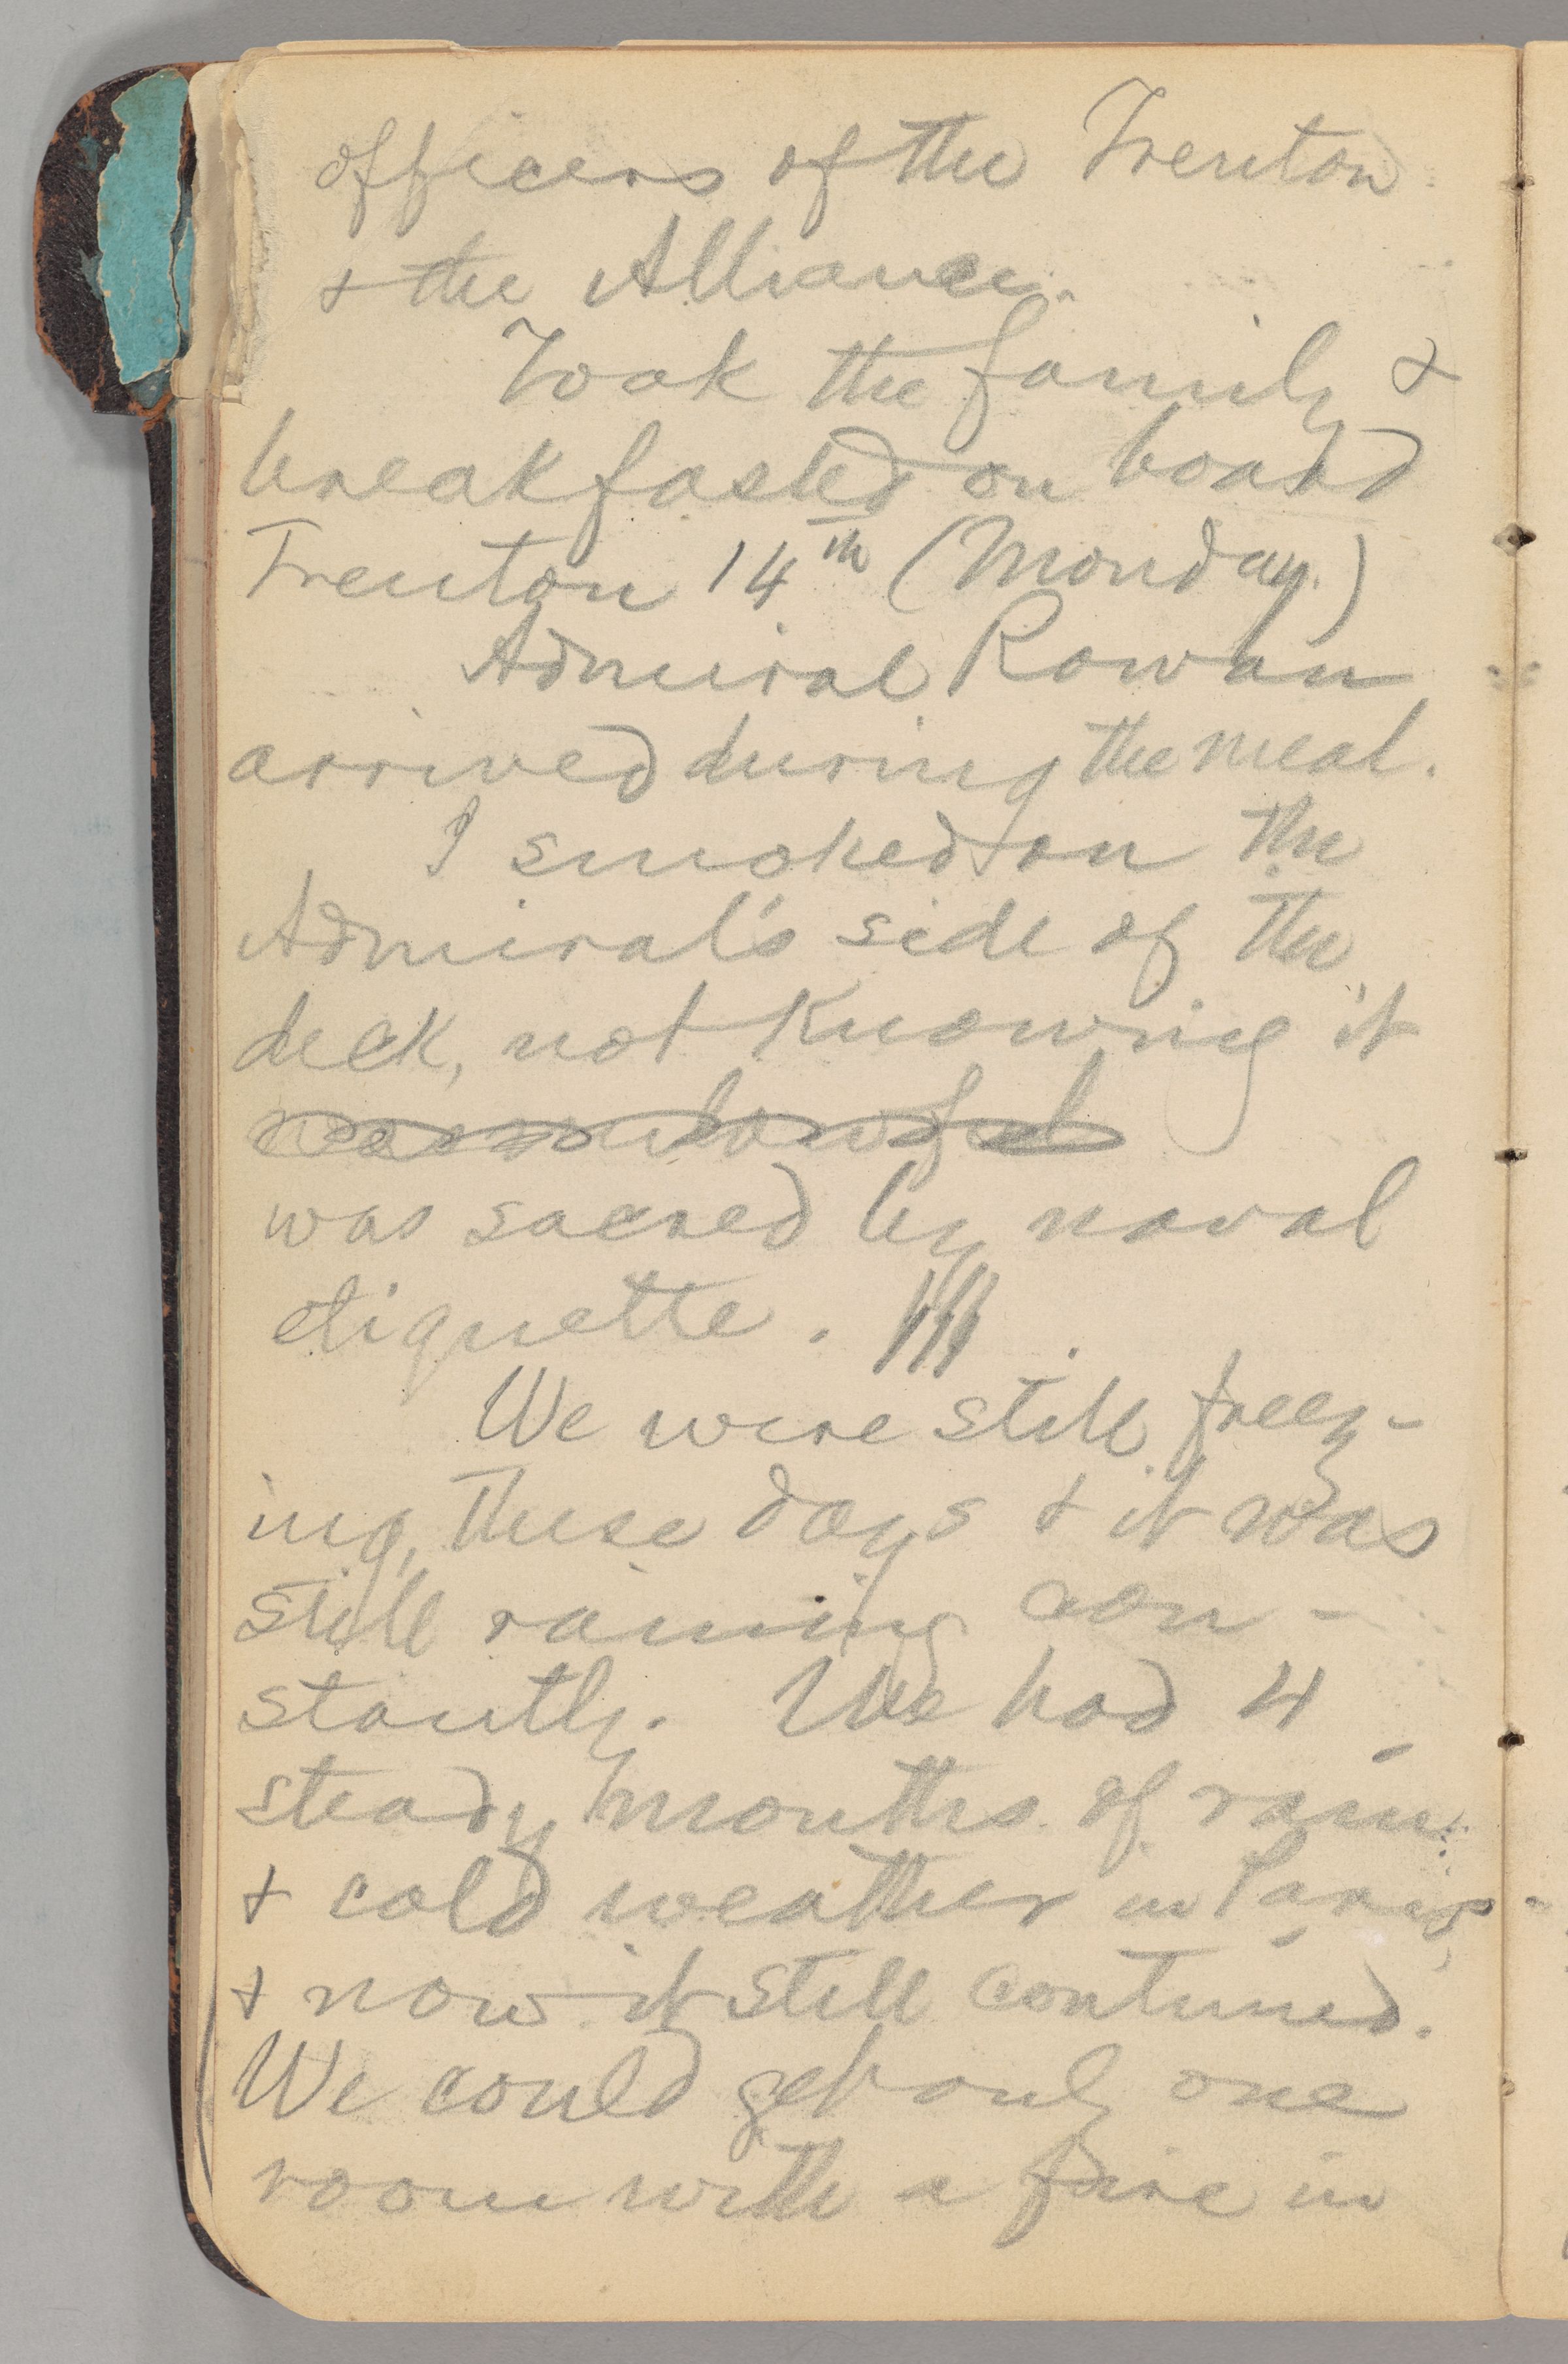 officers of the Trenton
& the Alliance.
Took the family &
breakfasted on board
Trenton 14th (Monday.)
Admiral Rowan
arrived during the meal.
I smoked on the
Admiral's side of the
deck, not knowing it
was unlawful
was sacred by naval
etiquette.
We were still freez-
ing, these days & it was
still raining con-
stantly. We had 4
steady months of rain
& cold weather in Paris,
& now it still contined.
We could get only one
room with a fire in